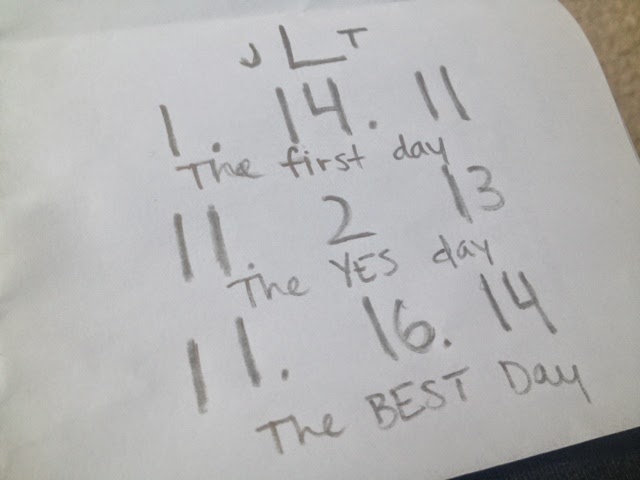 J L T
1. 14. 11
The first day
11. 2 13
The YES day
11. 16. 14
The BEST Day